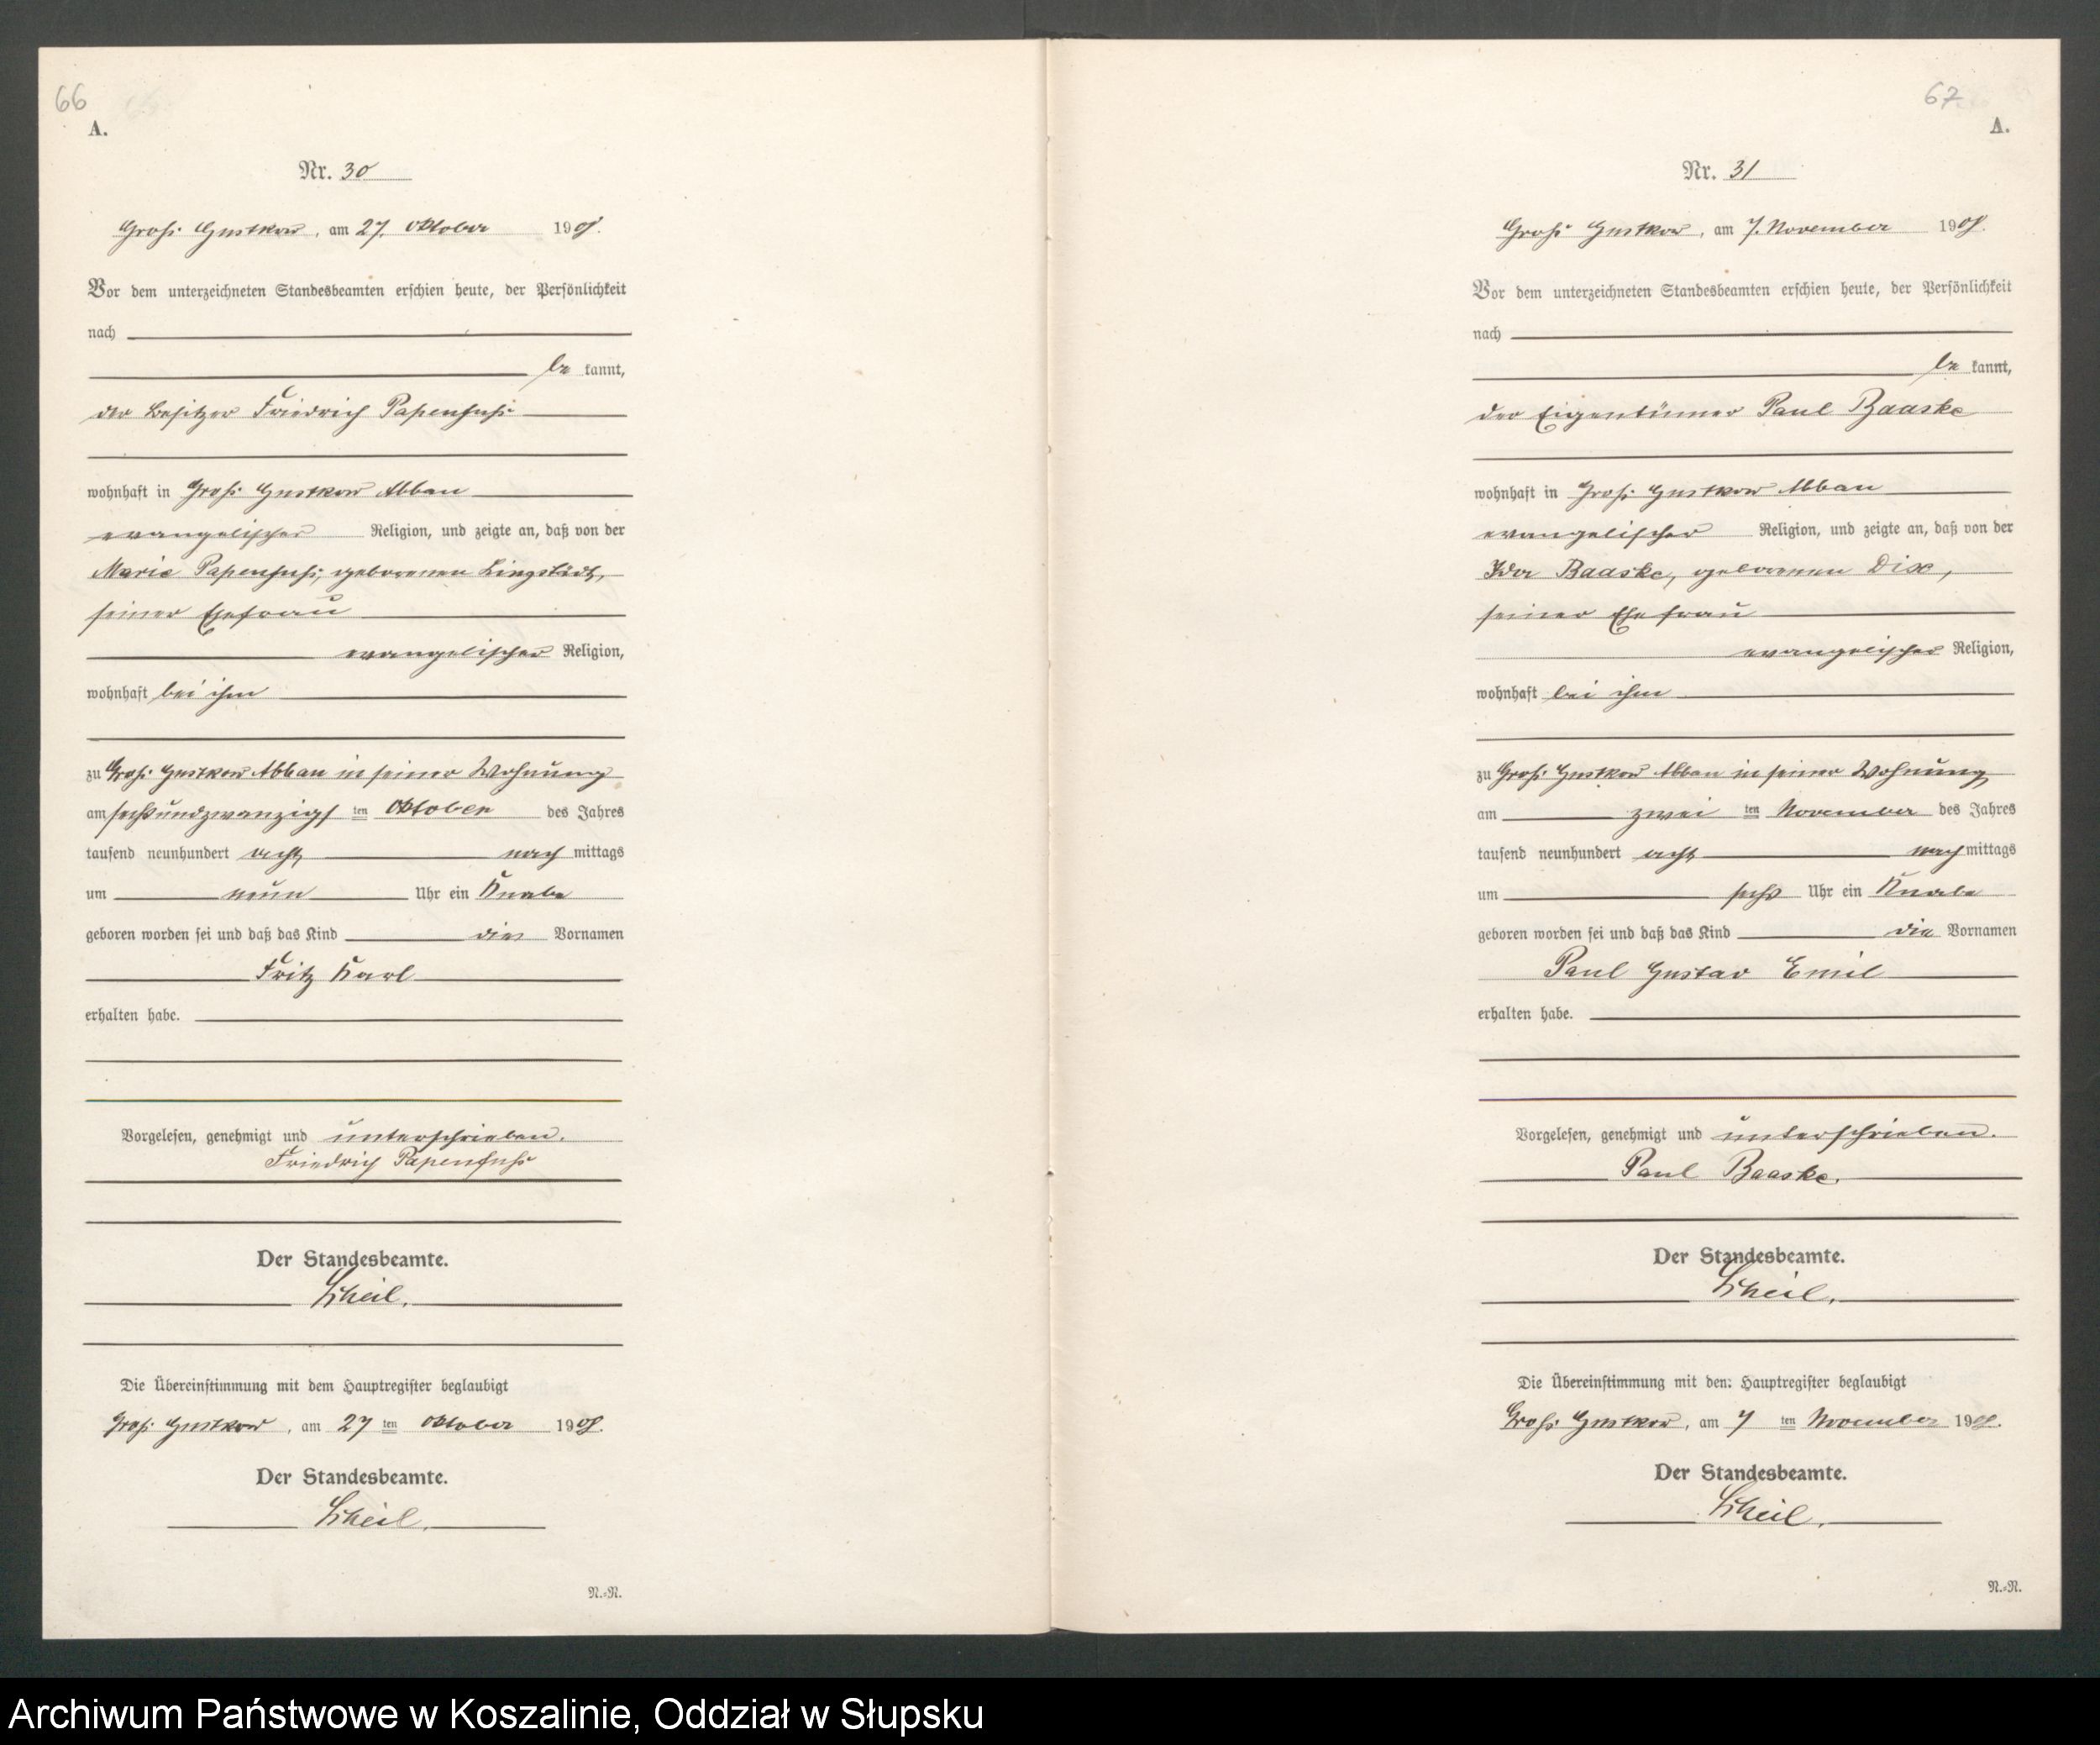 66
A.
Nr. 30
Groß Gustkow, am 27. Oktober 1908.
Vor dem unterzeichneten Standesbeamten erschien heute, der Persönlichkeit
nach
be kannt,
der Besitzer Friedrich Papenfuß
wohnhaft in Groß Gustkow Abbau
evangelischer Religion, und zeigte an, daß von der
Marie Papenfuß, geborenen
seiner Ehefrau
evangelischer Religion,
wohnhaft bei ihm
zu Groß Gustkow Abbau in seiner Wohnung
am sechsundzwanzigs ten Oktober des Jahres
tausend neunhundert acht nach mittags
um neun Uhr ein Knabe
geboren worden sei und daß das Kind die Vornamen
Fritz Karl
erhalten habe.
Vorgelesen, genehmigt und unterschrieben.
Friedrich Papenfuß
Der Standesbeamte.
Scheil.
Die Übereinstimmung mit dem Hauptregister beglaubigt
Groß Gustkow, am 27 ten Oktober 1908.
Der Standesbeamte.
Scheil.
N.=N.
67
A.
Nr. 31
Groß Gustkow, am 7. November 1908.
Vor dem unterzeichneten Standesbeamten erschien heute, der Persönlichkeit
nach
be kannt,
der Eigentümer Paul Baaske
wohnhaft in Groß Gustkow Abbau
evangelischer Religion, und zeigte an, daß von der
Ida Baaske, geborenen Dix,
seiner Ehefrau
evangelischer Religion,
wohnhaft bei ihm
zu Groß Gustkow Abbau in seiner Wohnung
am zwei ten November des Jahres
tausend neunhundert acht nach mittags
um sechs Uhr ein Knabe
geboren worden sei und daß das Kind die Vornamen
Paul Gustav Emil
erhalten habe.
Vorgelesen, genehmigt und unterschrieben.
Paul Baaske.
Der Standesbeamte.
Scheil.
Die Übereinstimmung mit dem Hauptregister beglaubigt
Groß Gustkow, am 7 ten November 1908.
Der Standesbeamte.
Scheil.
N.=N.
Archiwum Państwowe w Koszalinie, Oddział w Słupsku